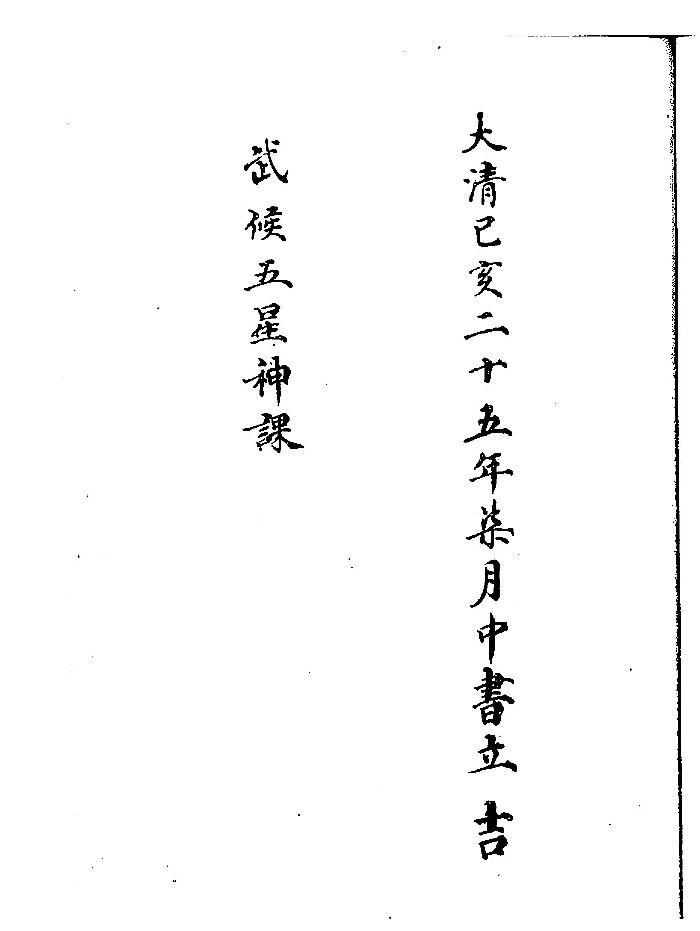 大清己亥二十五年柒月中書立 吉
武候五星神課